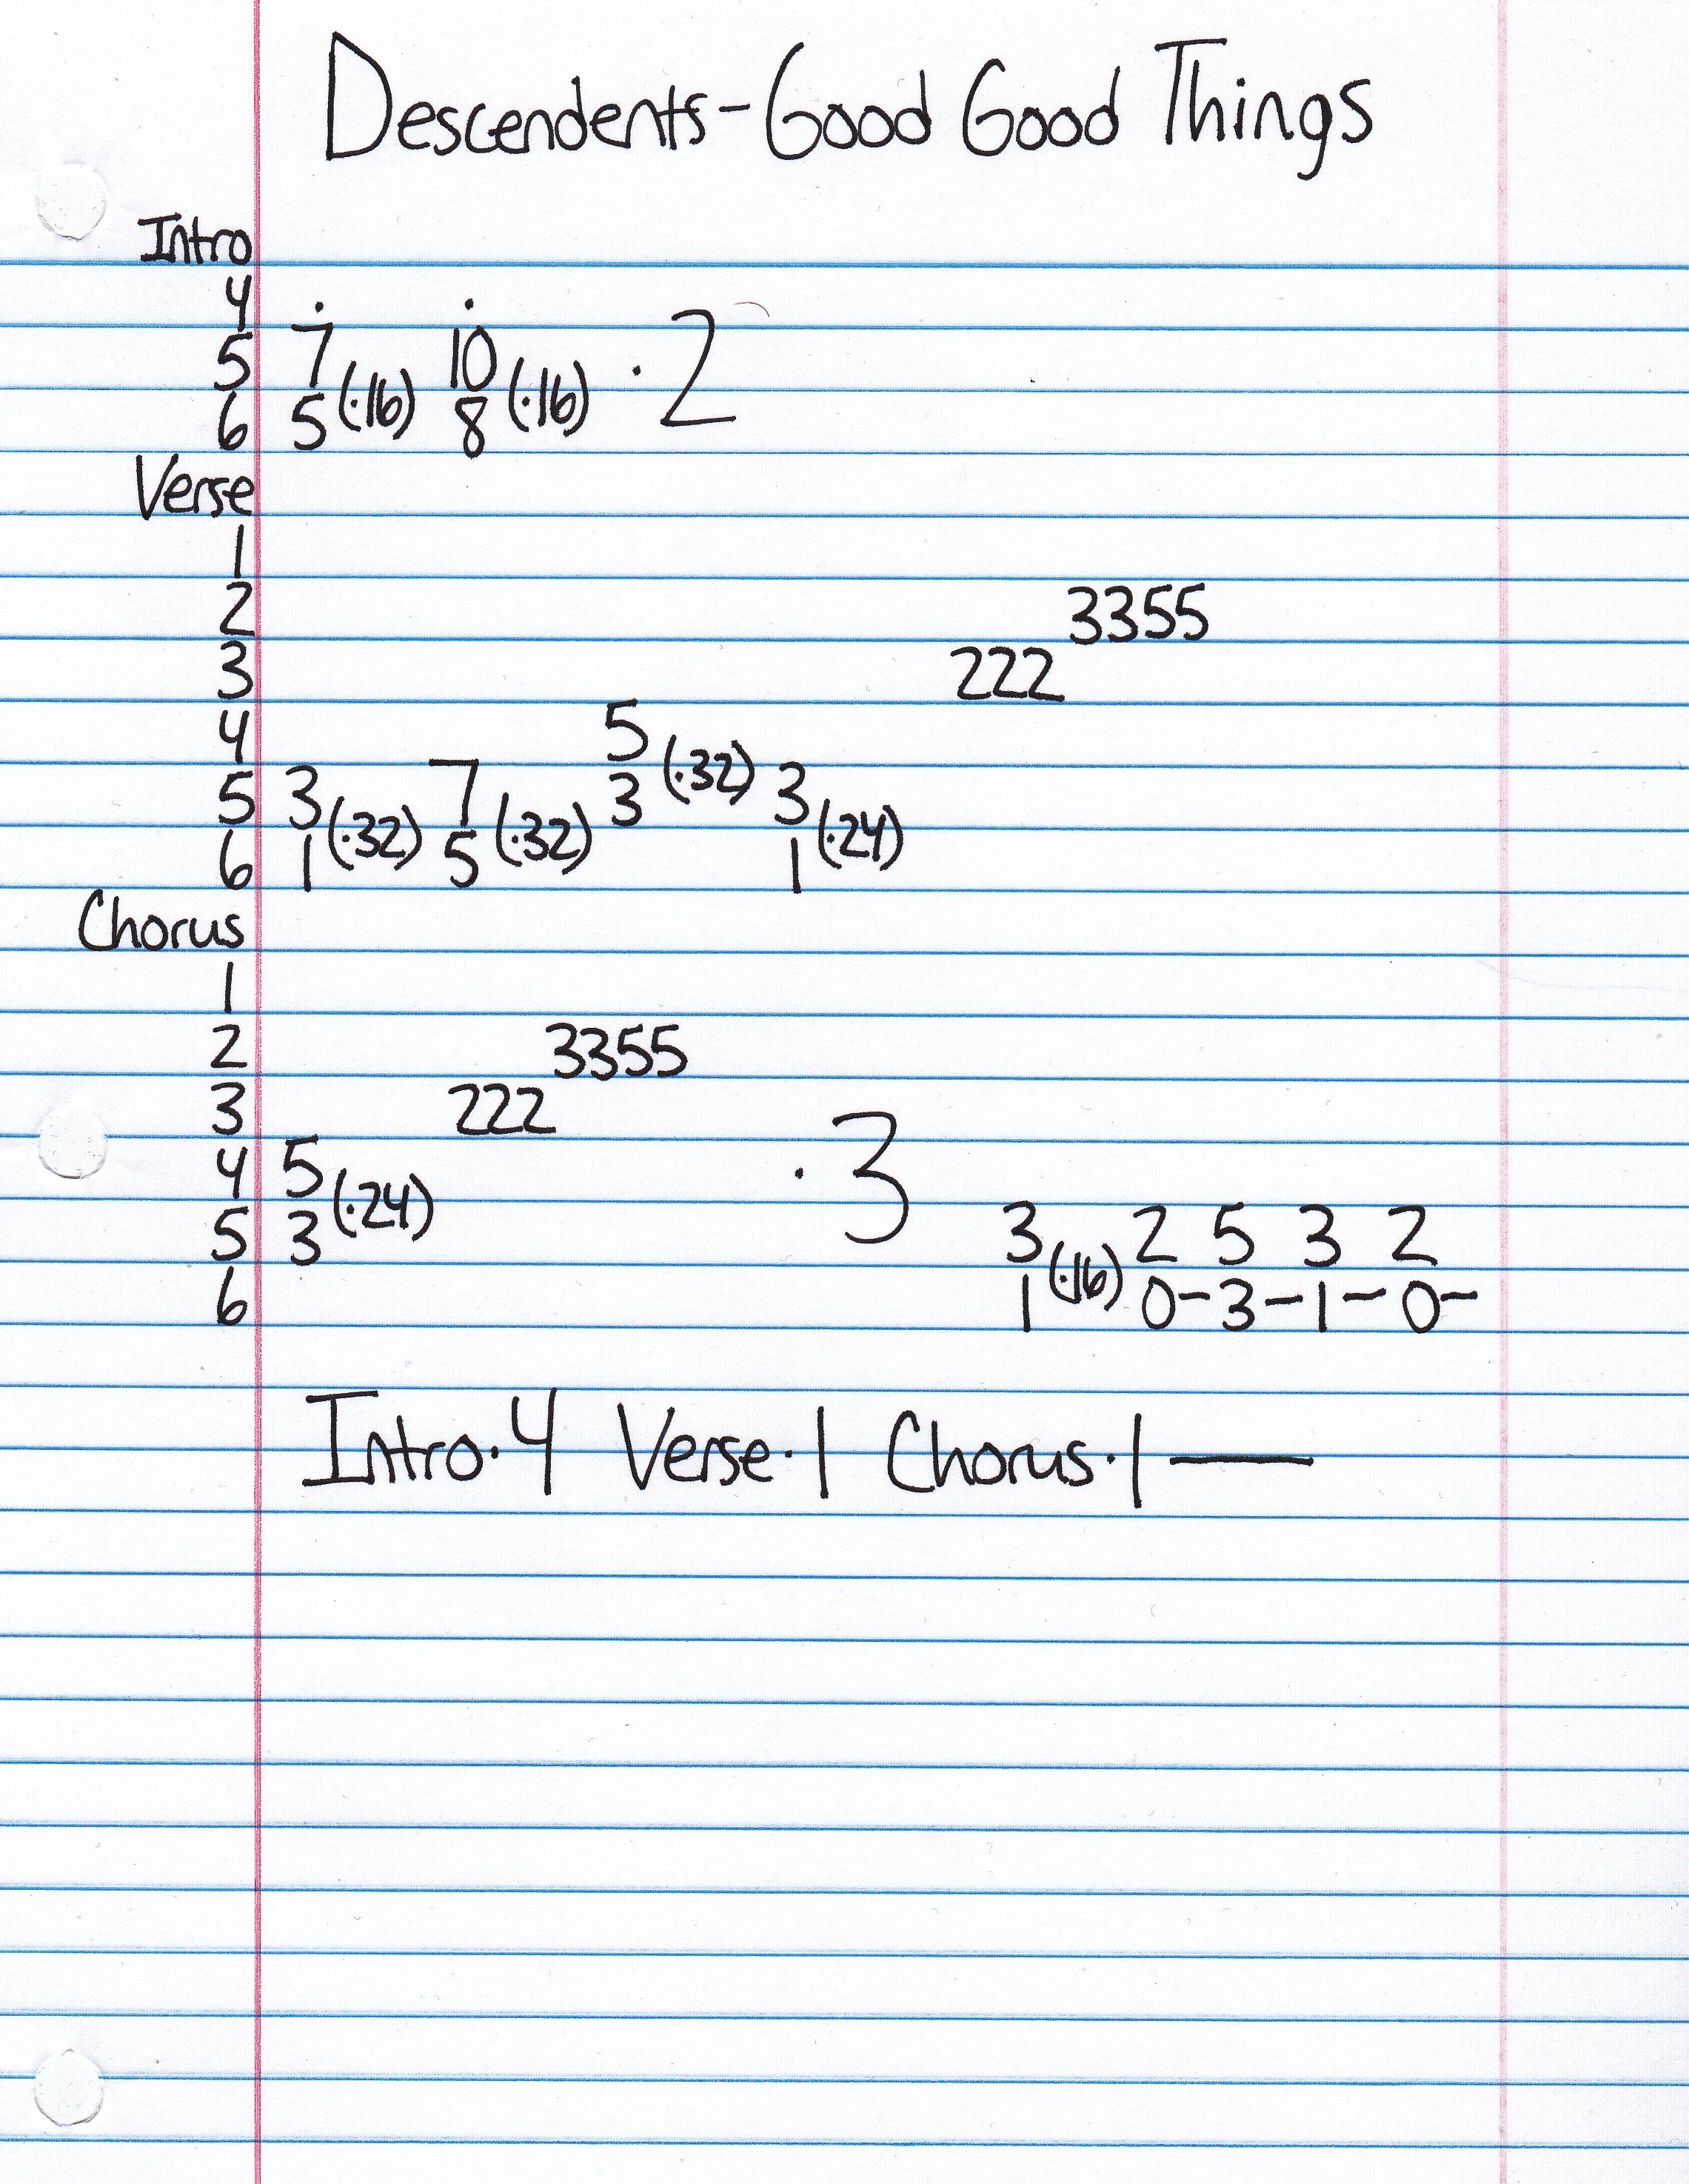 Descendents - Good Good Things
Intro
4 . .
5 7 (·16) 10 (·16) · 2
6 5 8
Verse
1
2 3355
3 222
4 5
5 3 (·32) 7 (·32) 3 (·32) 3 (·24)
6 1 5 1
Chorus
1
2 3355
3 222
4 5 (·24) · 3
5 3 3 (·16) 2 5 3 2
6 1 0- 3- 1- 0-
Intro·4 Verse·1 Chorus·1 —